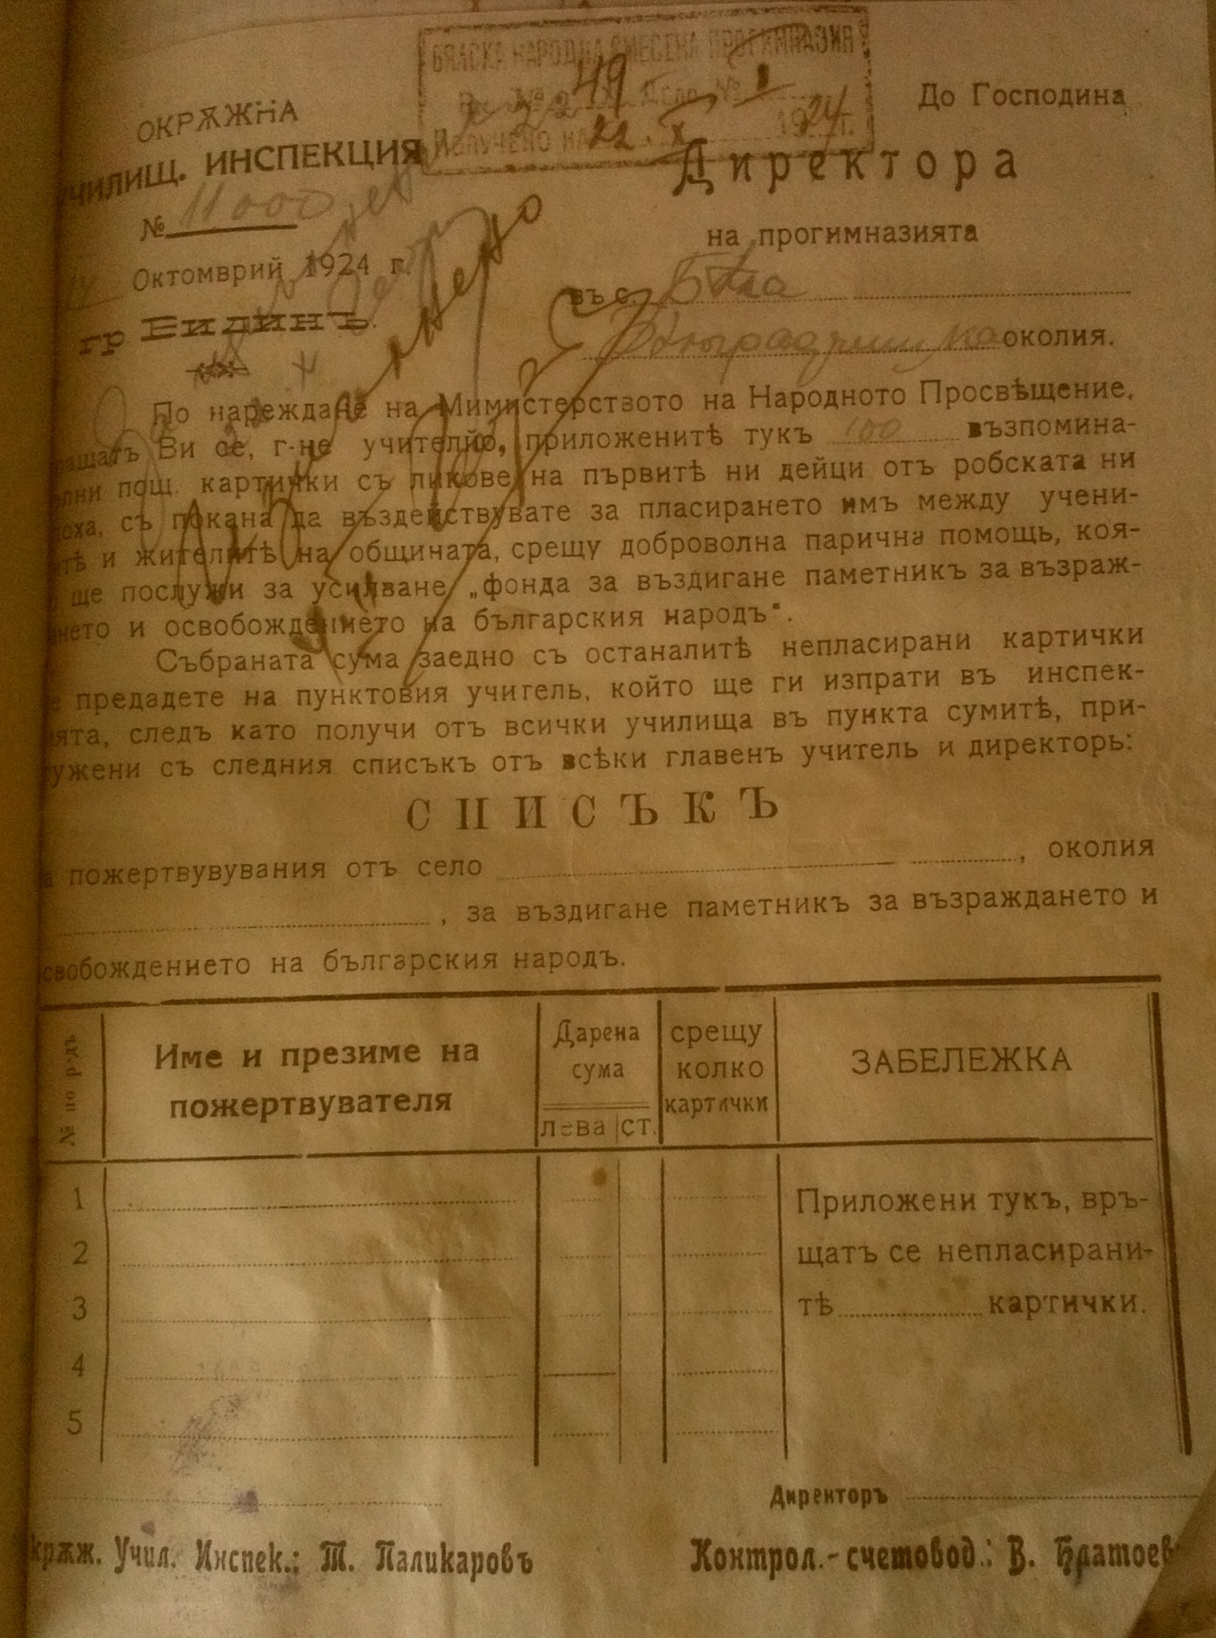 БЯЛСКА НАРОДНА СМЕСЕНА ПРОГИМНАЗИЯ
49 Дело № 1
ПОЛУЧЕНО НА 22 X 1924 г.
ОКРѪЖНА
УЧИЛИЩ. ИНСПЕКЦИЯ
№ 11000
Октомврий 1924 г.
гр Видинъ.
До Господина
Директора
на прогимназията
въ с. Бѣла
околия.
По нареждане на Мимистерството на Народното Просвѣщение,
ращатъ Ви се, г-не учителйо, приложенитѣ тукъ 100 възпомина-
елни пощ. картички съ ликове на първитѣ ни дейци отъ робската ни
поха, съ покана да въздействувате за пласирането имъ между учени-
тѣ и жителитѣ на общината, срещу доброволна парична помощь, коя-
ще послужи за усилване „фонда за въздигане паметникъ за възраж-
нето и освобождението на българския народъ“.
Събраната сума заедно съ останалитѣ непласирани картички
е предадете на пунктовия учигель, който ще ги изпрати въ инспек-
ията, следъ като получи отъ всички училища въ пункта сумитѣ, при-
ужени съ следния списъкъ отъ всѣки главенъ учител и директоръ:
СПИСЪКЪ
а пожертвувувания отъ село , околия
, за въздигане паметникъ за възраждането и
свобождението на българския народъ.
№ по р-дъ
Име и презиме на
пожертвувателя
Дарена
сума
лева ст.
срещу
колко
картички
ЗАБЕЛЕЖКА
1
2
3
4
5
Приложени тукъ, връ-
щатъ се непласирани-
тѣ картички.
Директоръ
крѫж. Учил. Инспек.: Т. Паликаровъ
Контрол.-счетовод.: В. Братоев